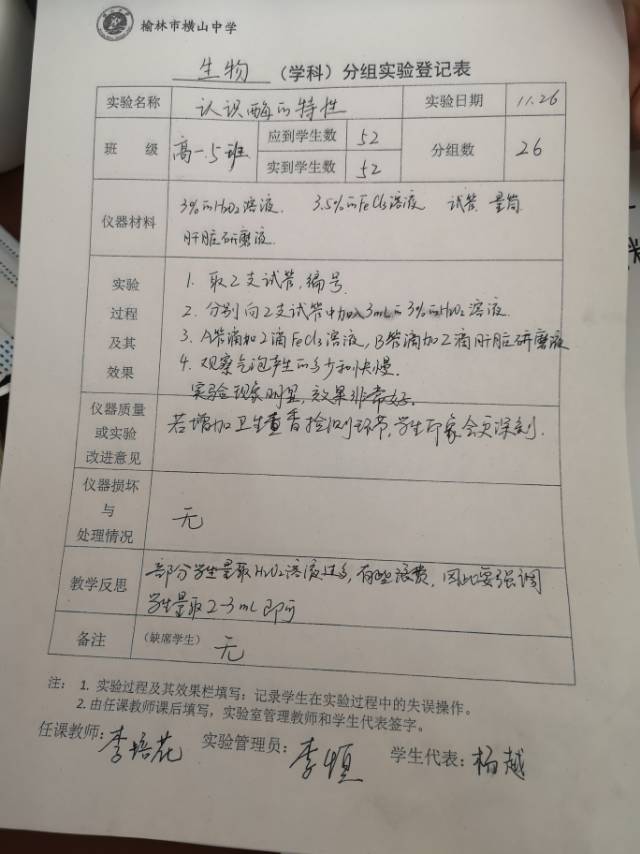 榆林市横山中学
生物 (学科)分组实验登记表
实验名称 认识酶的特性 实验日期 11.26
班 级 高一.5班 应到学生数 52 分组数 26
实到学生数 52
仪器材料 3%的H2O2溶液. 3.5%的FeCl3溶液 试管 量筒
肝脏研磨液.
实验过程及其效果 1. 取2支试管,编号.
2. 分别向2支试管中加入3mL的3%的H2O2溶液.
3. A管滴加2滴FeCl3溶液, B管滴加2滴肝脏研磨液
4. 观察气泡产生的多少和快慢.
实验现象明显, 效果非常好.
仪器质量或实验改进意见 若增加卫生香检测环节,学生印象会更深刻.
仪器损坏与处理情况 无
教学反思 部分学生量取H2O2溶液过多, 有些浪费, 因此要强调
学生量取2-3mL即可
备注 (缺席学生) 无
注: 1. 实验过程及其效果栏填写:记录学生在实验过程中的失误操作。
2.由任课教师课后填写,实验室管理教师和学生代表签字。
任课教师:李培花 实验管理员:李恒 学生代表:杨越